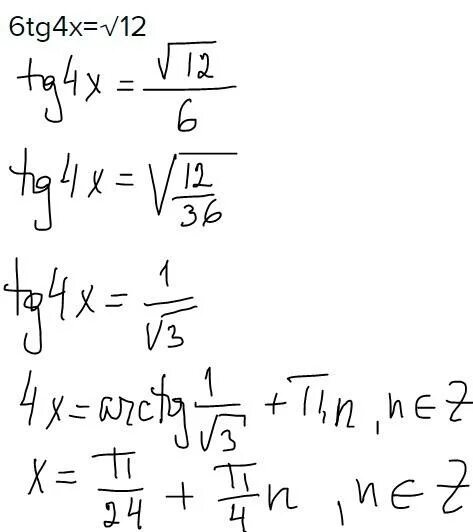 6tg4x=√12
tg4x = √12/6
tg4x = √(12/36)
tg4x = 1/√3
4x = arctg 1/√3 + πn, n ∈ Z
x = π/24 + π/4 n, n ∈ Z